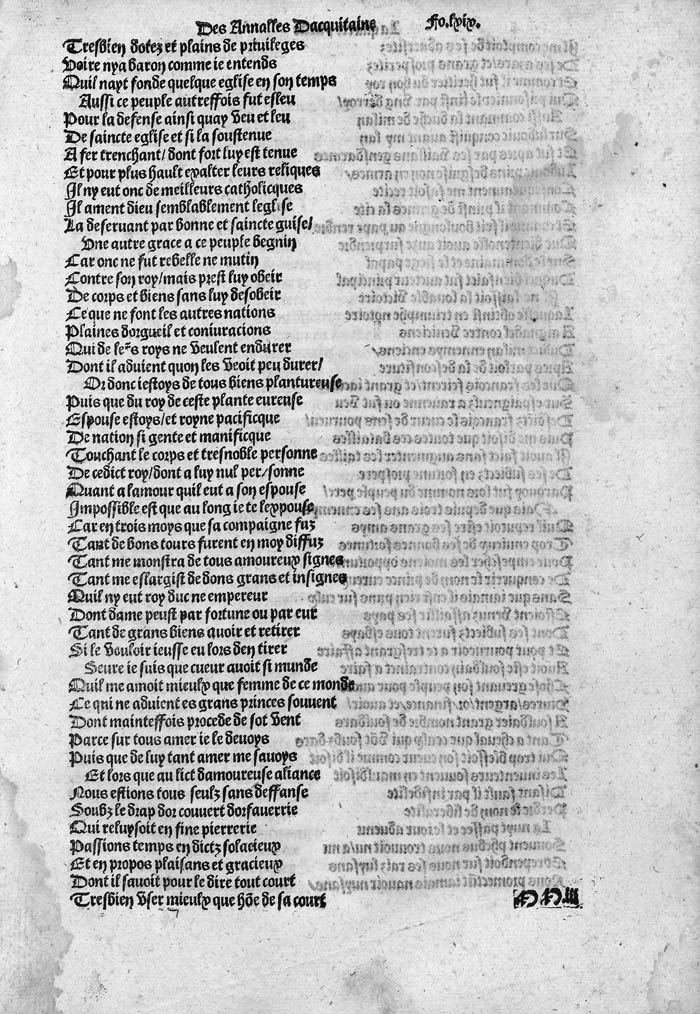 Des Annalles Dacquitaine Fo.lxix.
Tresbien dotez et plains de priuileges
Voire nya baron comme ie entends
Quil nayt fonde quelque eglise en son temps
Aussi ce peuple autreffois fut esleu
Pour la defense ainsi quay veu et leu
De saincte eglise et si la soustenue
A fer trenchant/ dont fort luy est tenue
Et pour plus hault exalter leurs reliques
Il ny eut onc de meilleurs catholicques
Il ament dieu semblablement leglise
La deseruant par bonne et saincte guise/
Vne autre grace a ce peuple begnin
Car onc ne fut rebelle ne mutin
Contre son roy/ mais prest luy obeir
De corps et biens sans luy desobeir
Ce que ne font les autres nations
Plaines dorgueil et coniuracions
Qui de leᵣs roys ne veulent endurer
Dont il aduient quon les veoit peu durer/
Or donc iestoys de tous biens plantureuse
Puis que du roy de ceste plante eureuse
Espouse estoys/ et royne pacificque
De nation si gente et manificque
Touchant le corps et tresnoble personne
De cedict roy/ dont a luy nul per/sonne
Quant a lamour quil eut a son espouse
Impossible est que au long ie te lexpouse
Car en trois moys que sa compaigne fuz
Tant de bons tours furent en moy diffuz
Tant me monstra de tous amoureux signes
Tant me eslargist de dons grans et insignes
Quil ny eut roy duc ne empereur
Dont dame peust par fortune ou par eur
Tant de grans biens auoir et retirer
Si le vouloir ieusse eu lors den tirer
Seure ie suis que cueur auoit si munde
Quil me amoit mieulx que femme de ce monde
Ce qui ne aduient es grans princes souuent
Dont mainteffois procede de sot vent
Parce sur tous amer ie le deuoys
Puis que de luy tant amer me sauoys
Et lors que au lict damoureuse aliance
Nous estions tous seulz sans deffanse
Soubz le drap dor couuert dorfauerrie
Qui reluysoit en fine pierrerie
Passions temps en dictz solacieux
Et en propos plaisans et gracieux
Dont il sauoit pour le dire tout court
Tresbien vser mieulx que hõe de sa court